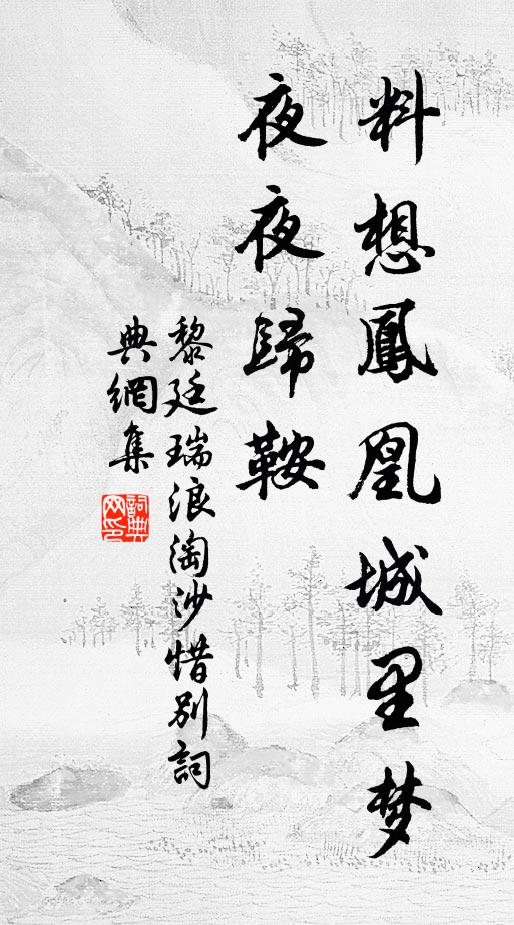 料想鳳凰城里梦
夜夜歸鞍
黎廷瑞浪淘沙惜别詞
典網集
詞典
网印